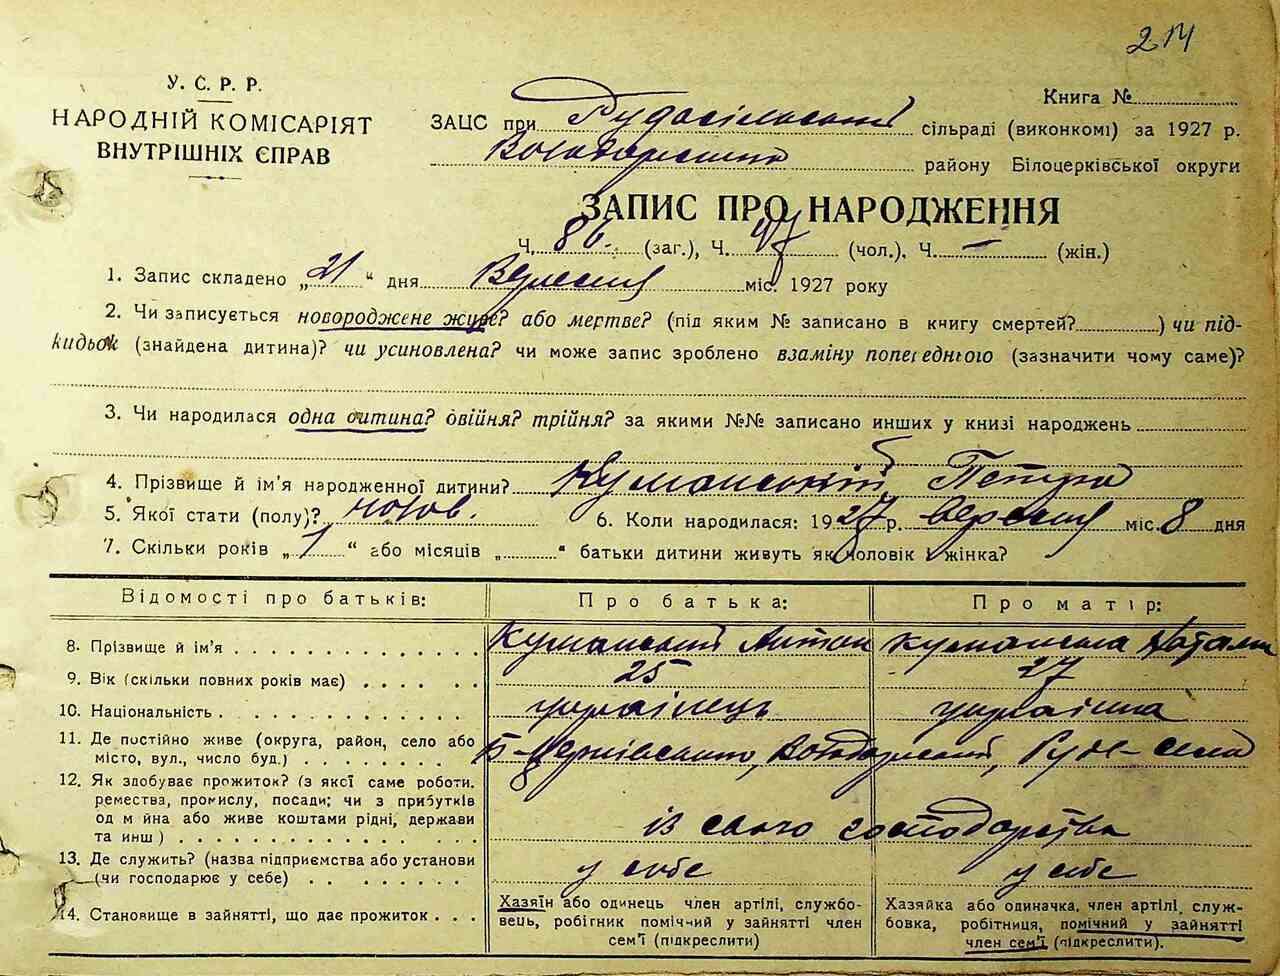 214
У. С. Р. Р.
НАРОДНІЙ КОМІСАРІЯТ
ВНУТРІШНІХ ЄПРАВ
Книга №
ЗАЦС при Рудосільський сільраді (виконкомі) за 1927 р.
району Білоцерківської округи
ЗАПИС ПРО НАРОДЖЕННЯ
Ч. 86. (заг.), Ч. 47 (чол.), Ч. — (жін.)
1. Запис складено „ 21 “ дня Вересня міс. 1927 року
2. Чи записується новороджене живе? або мертве? (під яким № записано в книгу смертей? ) чи під-
кидьок (знайдена дитина)? чи усиновлена? чи може запис зроблено взаміну попереднього (зазначити чому саме)?
3. Чи народилася одна дитина? двійня? трійня? за якими №№ записано инших у книзі народжень
4. Прізвище й ім'я народженної дитини? Куманський Петро
5. Якої стати (полу)? чолов. 6. Коли народилася: 1927 р. вересня міс. 8 дня
7. Скільки років „ 1 “ або місяців „ “ батьки дитини живуть як чоловік і жінка?
Відомості про батьків: Про батька: Про матір:
8. Прізвище й ім'я Куманський Антон Куманська Наталя
9. Вік (скільки повних років має) 25 27
10. Національність українець українка
11. Де постійно живе (округа, район, село або
місто, вул., число буд.) Б-Церківського, Володарський, Руде-село
12. Як здобуває прожиток? (з якої саме роботи,
ремества, промислу, посади; чи з прибутків
од майна або живе коштами рідні, держави
та инш) із свого господарства
13. Де служить? (назва підприємства або установи
(чи господарює у себе) у себе у себе
14. Становище в зайнятті, що дає прожиток
Хазяїн або одинець член артілі, службо-
вець, робітник помічний у зайнятті член
сем'ї (підкреслити)
Хазяйка або одиначка, член артілі, служ-
бовка, робітниця, помічний у зайнятті
член сем'ї (підкреслити).